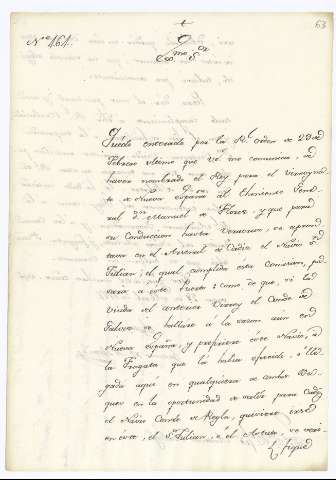 63
Nº 464.
Exmo Sor
Quedo enterado por la Rl orden de 23 de
Febrero ultimo que V.E. me comunica, de
haver nombrado el Rey para el Virreyna
to de Nueva España al Theniente Gene
ral Dn Manuel de Flores, y que para
su conduccion hasta Veracruz, se apron
tava en el Arsenal de Cadiz el Navio Sn
Julian; el qual, cumplida esta comision, pa
sara a este Puerto: como de que, si la
viuda del anterior Virrey el Conde de
Galvez se hallase a la sazon aun en
Nueva España, y prefiriese este Navio, a
la Fragata que la habia ofrecido, lle
gada aqui en qualquiera de ambos Bu
ques en la oportunidad de salir para Cadiz
el Navio Castilla, quisiere
en este, el Sn Julian, o el Astuto, se